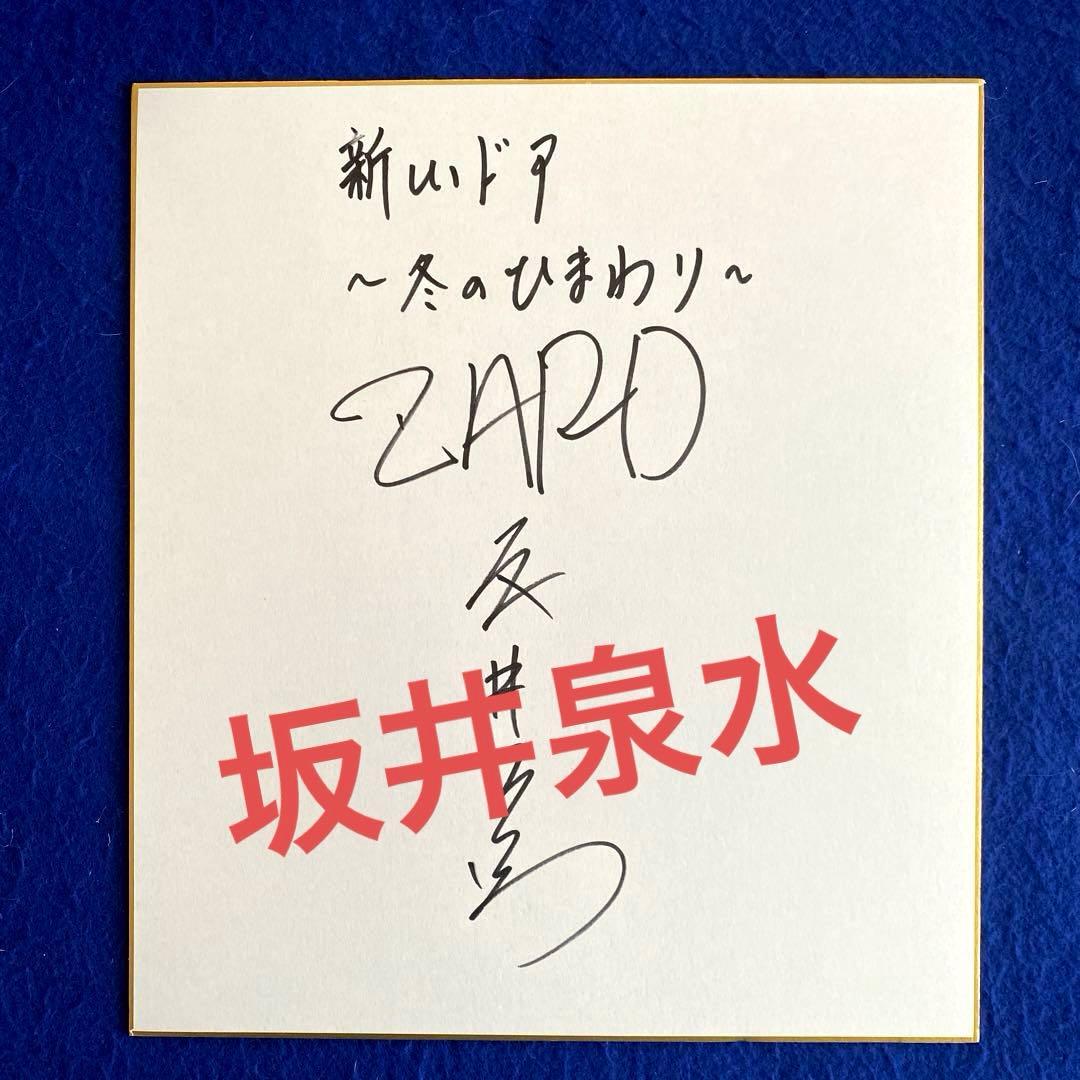 新しいドア
~冬のひまわり~
ZARD
坂井泉水